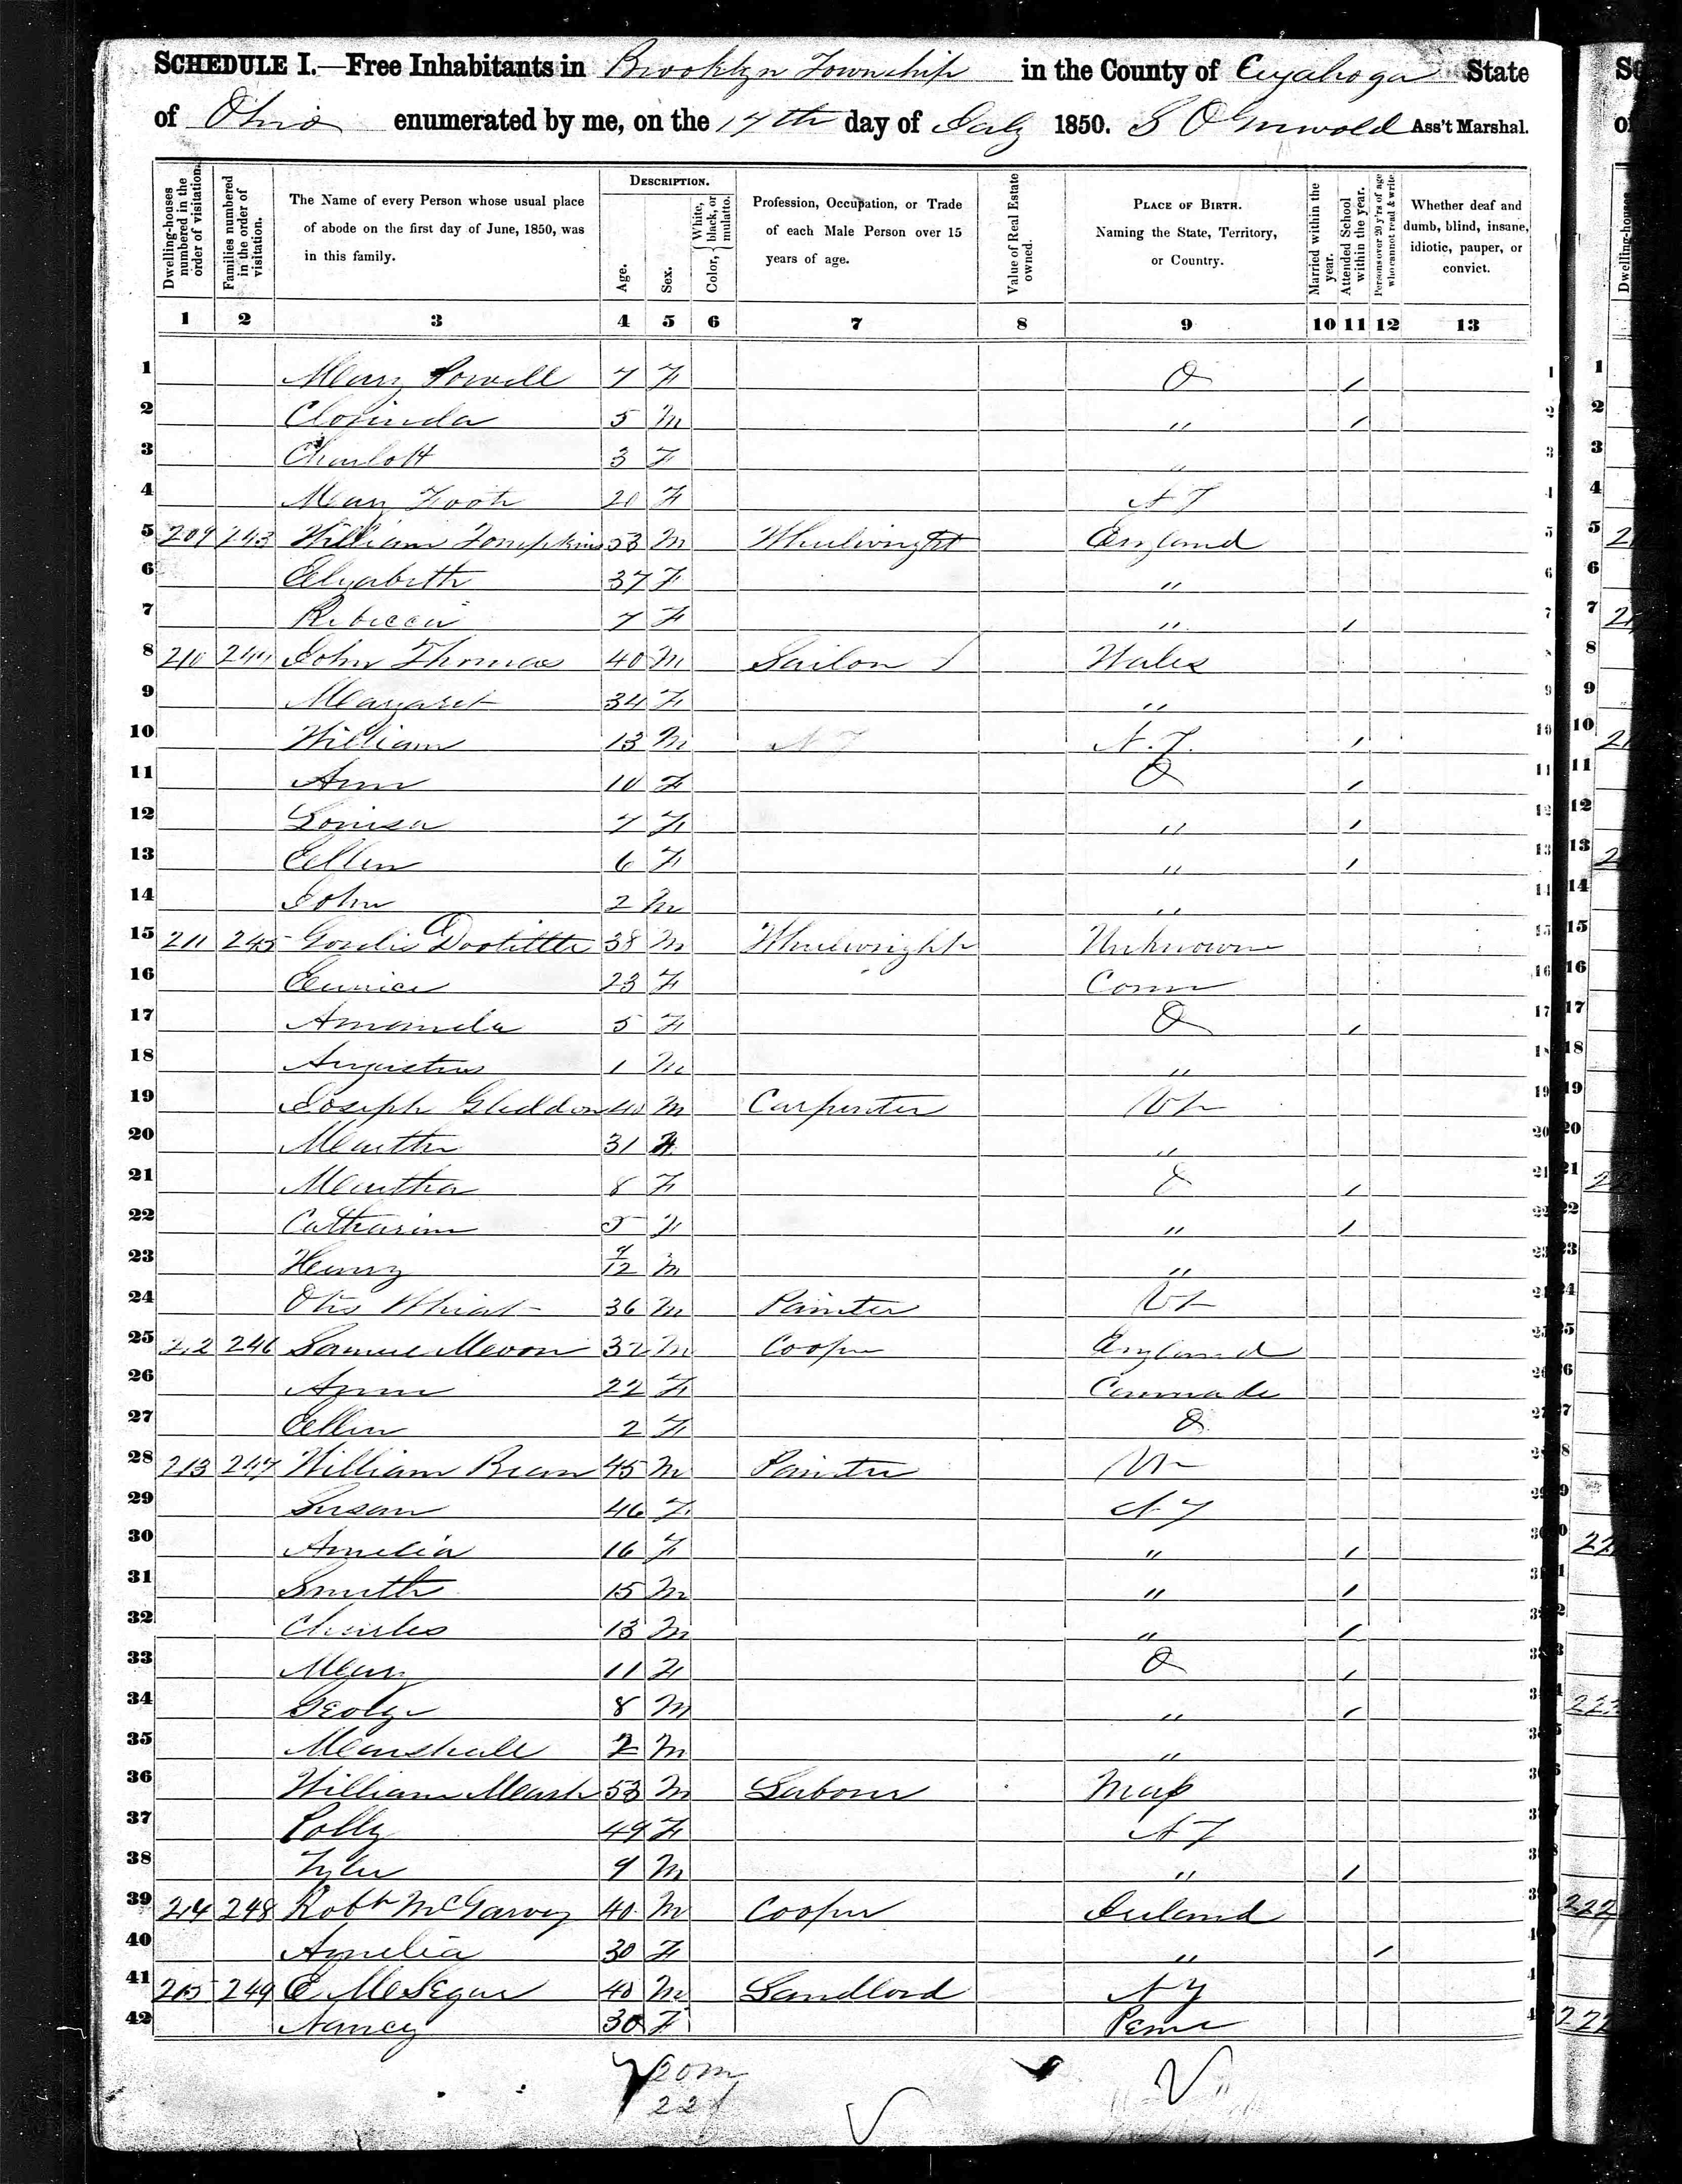 SCHEDULE I.—Free Inhabitants in Brooklyn Township in the County of Cuyahoga State
of Ohio enumerated by me, on the 17th day of July 1850. S O Griswold Ass't Marshal.
Dwelling-houses numbered in the order of visitation.
Families numbered in the order of visitation.
The Name of every Person whose usual place of abode on the first day of June, 1850, was in this family.
DESCRIPTION.
Age.
Sex.
Color, White, black, or mulatto.
Profession, Occupation, or Trade of each Male Person over 15 years of age.
Value of Real Estate owned.
PLACE OF BIRTH. Naming the State, Territory, or Country.
Married within the year.
Attended School within the year.
Persons over 20 y'rs of age who cannot read & write.
Whether deaf and dumb, blind, insane, idiotic, pauper, or convict.
1 2 3 4 5 6 7 8 9 10 11 12 13
1 Mary Powell 7 F O / 1
2 Clorinda 5 M " / 2
3 Charlott 3 F " 3
4 Mary Foot 20 F N Y 4
5 209 243 William Tompkins 53 M Wheelwright England 5
6 Elizabeth 37 F " 6
7 Rebecca 7 F " / 7
8 210 244 John Thomas 40 M Sailor Wales 8
9 Margaret 34 F " 9
10 William 13 M N Y N.Y. / 10
11 Ann 10 F O / 11
12 Louisa 7 F " / 12
13 Ellen 6 F " / 13
14 John 2 M " 14
15 211 245 Doolittle 38 M Wheelwright Unknown 15
16 Eunice 23 F Conn 16
17 Amanda 5 F O / 17
18 Augustus 1 M " 18
19 Joseph Gliddon 40 M Carpenter Vt 19
20 Martha 31 F " 20
21 Martha 8 F O / 21
22 Catharine 5 F " / 22
23 Henry 9/12 M " 23
24 Otis Wheat 36 M Painter Vt 24
25 212 246 Samuel 32 M Cooper England 25
26 Ann 22 F Cannada 26
27 Ellen 2 F O 27
28 213 247 William Bean 45 M Painter Vt 28
29 Susan 46 F N Y 29
30 Amelia 16 F " / 30
31 Smith 15 M " / 31
32 Charles 13 M " / 32
33 Mary 11 F O / 33
34 George 8 M " / 34
35 Marshall 2 M " 35
36 William Marsh 53 M Labour Mass 36
37 Polly 49 F N Y 37
38 Tyler 9 M " / 38
39 214 248 Robt McGarvey 40 M Cooper Ireland 39
40 Amelia 30 F " / 40
41 215 249 E McSegar 40 M Landlord N Y
42 Nancy 30 F Penn
20 m
22 f